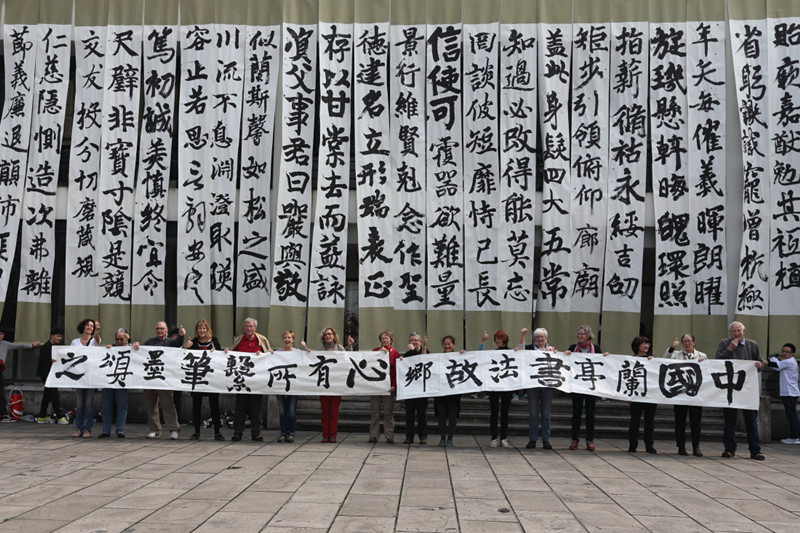 貽厥嘉猷勉其祗植
省躬譏誡寵增抗極
年矢每催羲暉朗曜
旋璣懸斡晦魄環照
指薪脩祜永綏吉劭
矩步引領俯仰廊廟
蓋此身髮四大五常
知過必改得能莫忘
罔談彼短靡恃己長
信使可覆器欲難量
景行維賢剋念作聖
德建名立形端表正
存以甘棠去而益詠
資父事君曰嚴與敬
似蘭斯馨如松之盛
川流不息淵澄取暎
容止若思言辭安定
篤初誠美慎終宜令
尺璧非寶寸陰是競
交友投分切磨箴規
仁慈隱惻造次弗離
節義廉退顛沛匪
中國蘭亭書法故鄉
心有所繫筆墨頌之